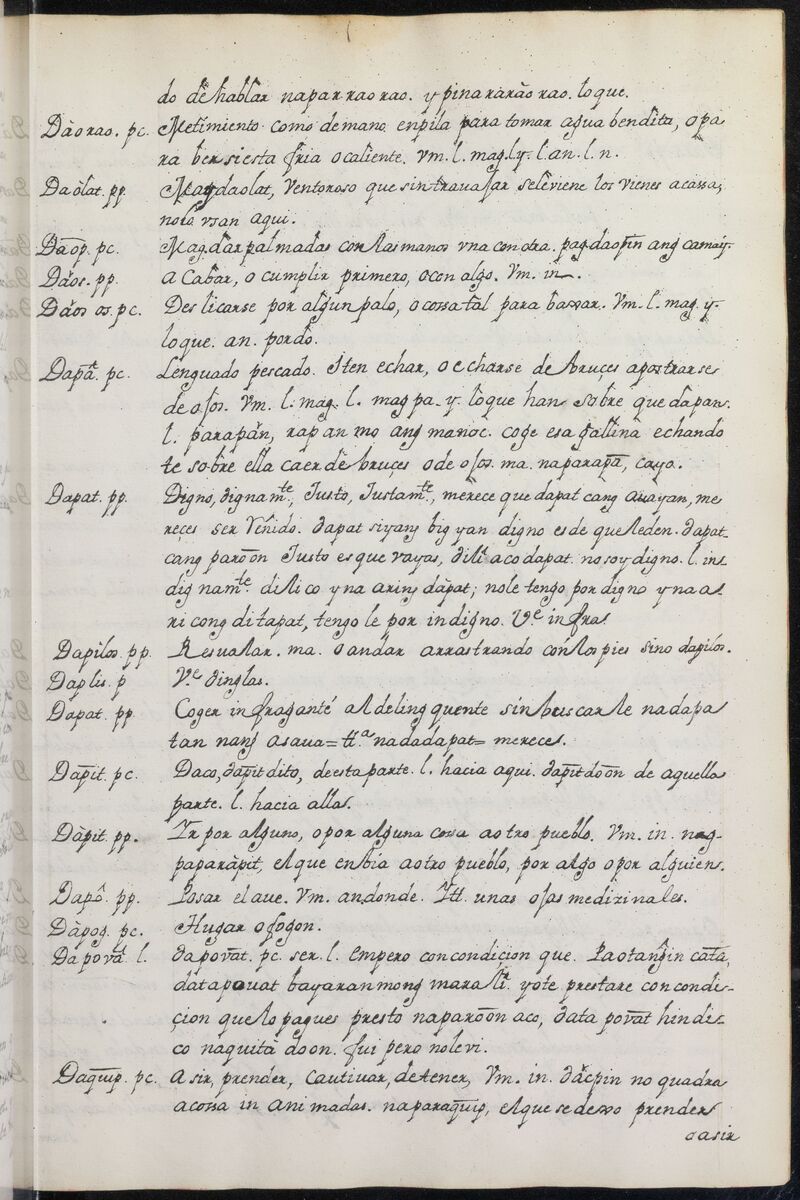 do de hablar naparrao rao. y pinararào rao. lo que.
Dào rao. pc. Metimiento como de mano en pila para tomar agua bendita, o pa
ra ber si esta fria o caliente. vm. l. mag. y. l. an. l. n.
Daòlat. pp. Magdaolat, Venturoso que sin travajar se le viene los vienes a cassa,
no lo vsan aqui.
Daop. pc. Mag. dar palmadas con las manos vna con otra. pagdaopin ang camay.
Dáos. pp. acabar, o cumplir primero, o con algo. Vm. in.
Dáos os. pc. Deslicarse por algun palo, o cossa tal para baxar. Vm. l. mag. y.
lo que. an. por do.
Dapa. pc. Lenguado pescado. Iten echar, o echarse de bruçes a postrarse
de ojos. Vm. l. mag. l. magpa. y. lo que han sobre que dapan.
l. parapan, rapan mo ang manoc. coge esa gallina echando
te sobre ella caer de bruçes o de ojos. ma. naparapa, cayo.
Dapat. pp. Digno, dignamte, Justo, Justamte, mereçe que dapat cang auayan, me
reçes ser reñido. dapat siyang bigyan digno es de que le den. dapat
cang paroon Justo es que vayas, dili aco dapat. no soy digno. l. in
dignamte. dili co ynaaring dàpat; no le tengo por digno ynaa
ri cong di tapat, tengo le por indigno. Ve infra
Dapilos. pp. Resualar. ma. o andar arrastrando con los pies sino dapilos.
Daplis. p Ve dinglas.
Dapat. pp. Coger infraganté al delinqquente sin buscarle nadapa
tan nang asaua = tta nadadapat = mereçes.
Dapit. pc. Daco, dapit dito, de esta parte. l. hacia aqui. dapit doon de aquella
parte. l. hacia alla.
Dàpit. pp. Ir por alguno, o por alguna cossa a otro pueblo. Vm. in. nag-
paparàpit, el que enbia a otro pueblo, por algo o por alguien.
Dapô. pp. Posar el aue. Vm. an. donde. Itt. unas ojas medizinales.
Dàpog. pc. Hugar o fogon.
Dapova. l. dapovat. pc. ser. l. Empero con condiçion que. Paotangin cata,
datapouat bayaran mong marali. yo te prestare con condi-
çion que lo pagues presto naparoon aco, data povat hindi
co naquità doon. fui pero no le vi.
Daquip. pc. asir, prender, cautiuar, detener, Vm. in. dacpin no quadra
a cossa in animadas. naparaquip, el que se dexo prender
o asir